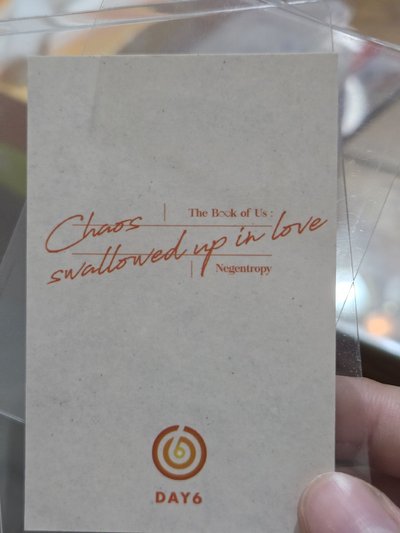 The Book of Us :
Chaos
swallowed up in love
Negentropy
6
DAY6